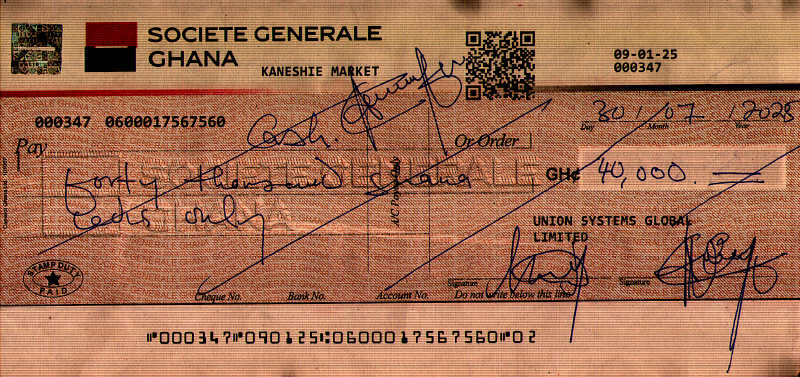 SOCIETE GENERALE
GHANA
KANESHIE MARKET
09-01-25
000347
30 / 07 / 2025
Day Month Year
000347 0600017567560
Pay Cash. Or Order
forty thousand Ghana
cedis only
GH¢ 40,000.
A/C Payee Only
UNION SYSTEMS GLOBAL
LIMITED
STAMP DUTY
PAID
Signature Signature
Cheque No. Bank No. Account No. Do not write below this line
⑈000347⑈090125⑆0600017567560⑈02